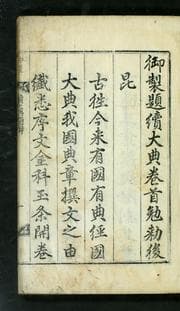 御製題續大典卷首勉勅後
昆
古往今来有國有典經國
大典我國典章撰文之由
纖悉序文金科玉条開卷